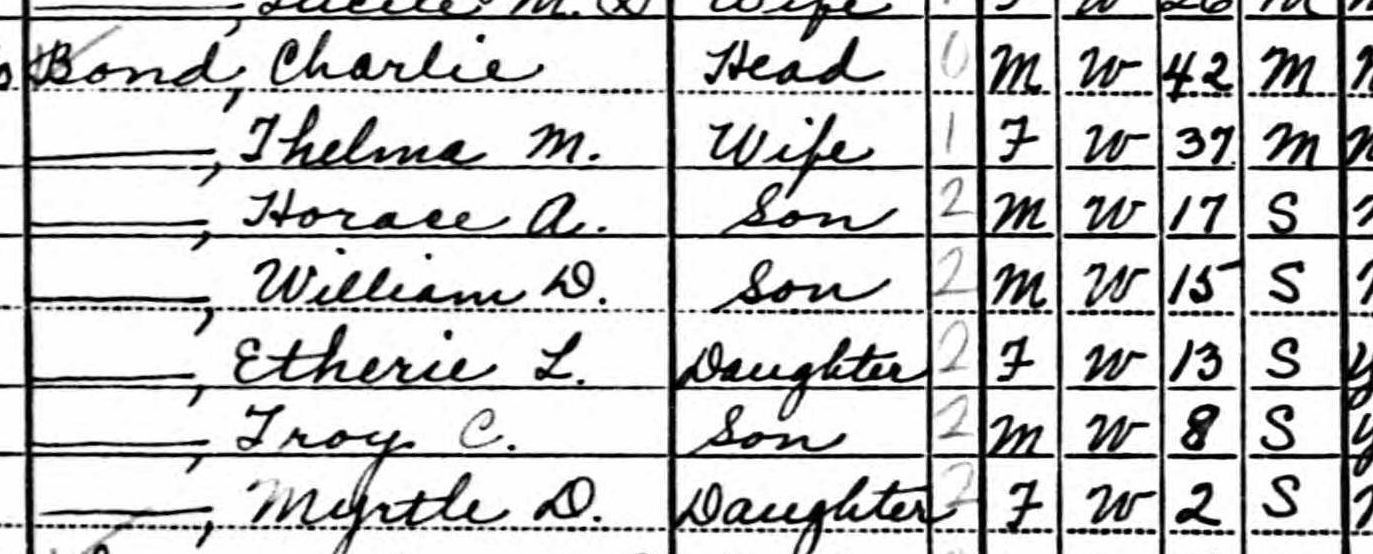 Lucile M. Wife F W 26 M
Bond, Charlie Head 0 M W 42 M
——, Thelma M. Wife 1 F W 37 M
——, Horace A. Son 2 M W 17 S
——, William D. Son 2 M W 15 S
——, Etherie L. Daughter 2 F W 13 S
——, Troy C. Son 2 M W 8 S
——, Myrtle D. Daughter 2 F W 2 S